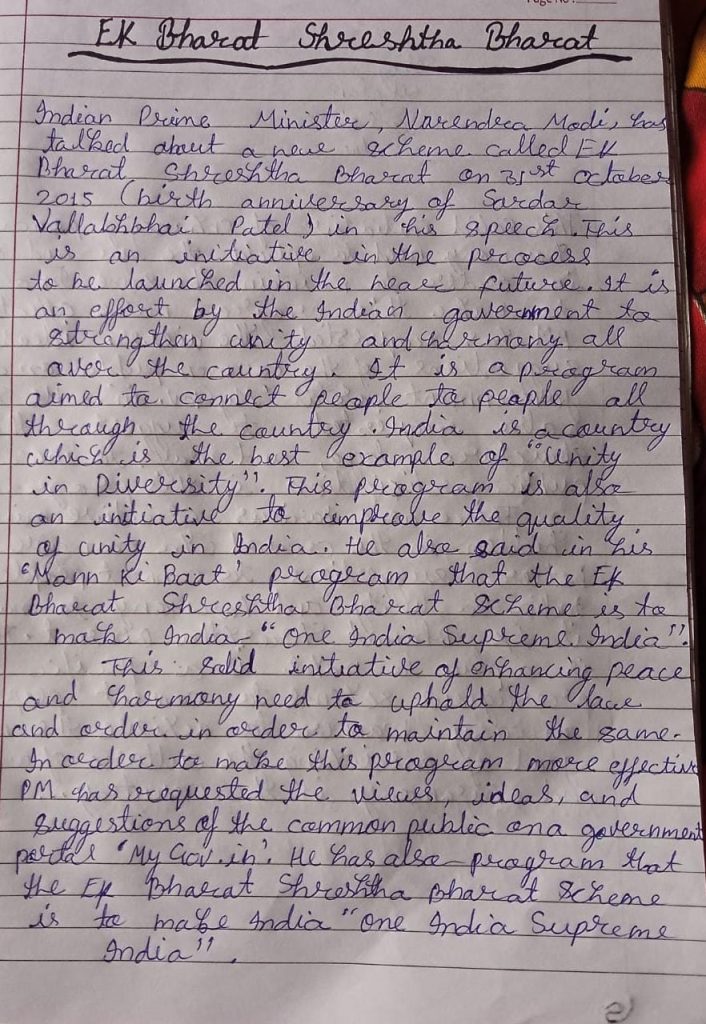 Page No.:
EK Bharat Shreshtha Bharat
Indian Prime Minister, Narendra Modi, has
talked about a new scheme called EK
Bharat Shreshtha Bharat on 31st october
2015 (birth anniversary of Sardar
Vallabhbhai Patel) in his speech. This
is an initiative in the process
to be launched in the near future. It is
an effort by the Indian government to
strengthen unity and harmony all
over the country. It is a program
aimed to connect people to people all
through the country. India is a country
which is the best example of "Unity
in Diversity". This program is also
an initiative to improve the quality
of unity in India. He also said in his
'Mann Ki Baat' program that the EK
Bharat Shreshtha Bharat scheme is to
mak India "One India Supreme India".
This solid initiative of enhancing peace
and harmony need to uphold the law
and order in order to maintain the same.
In order to make this program more effective
PM has requested the views, ideas, and
suggestions of the common public on a government
portal 'My Gov.in'. He has also program that
the EK Bharat Shreshtha Bharat scheme
is to make India "One India Supreme
India".